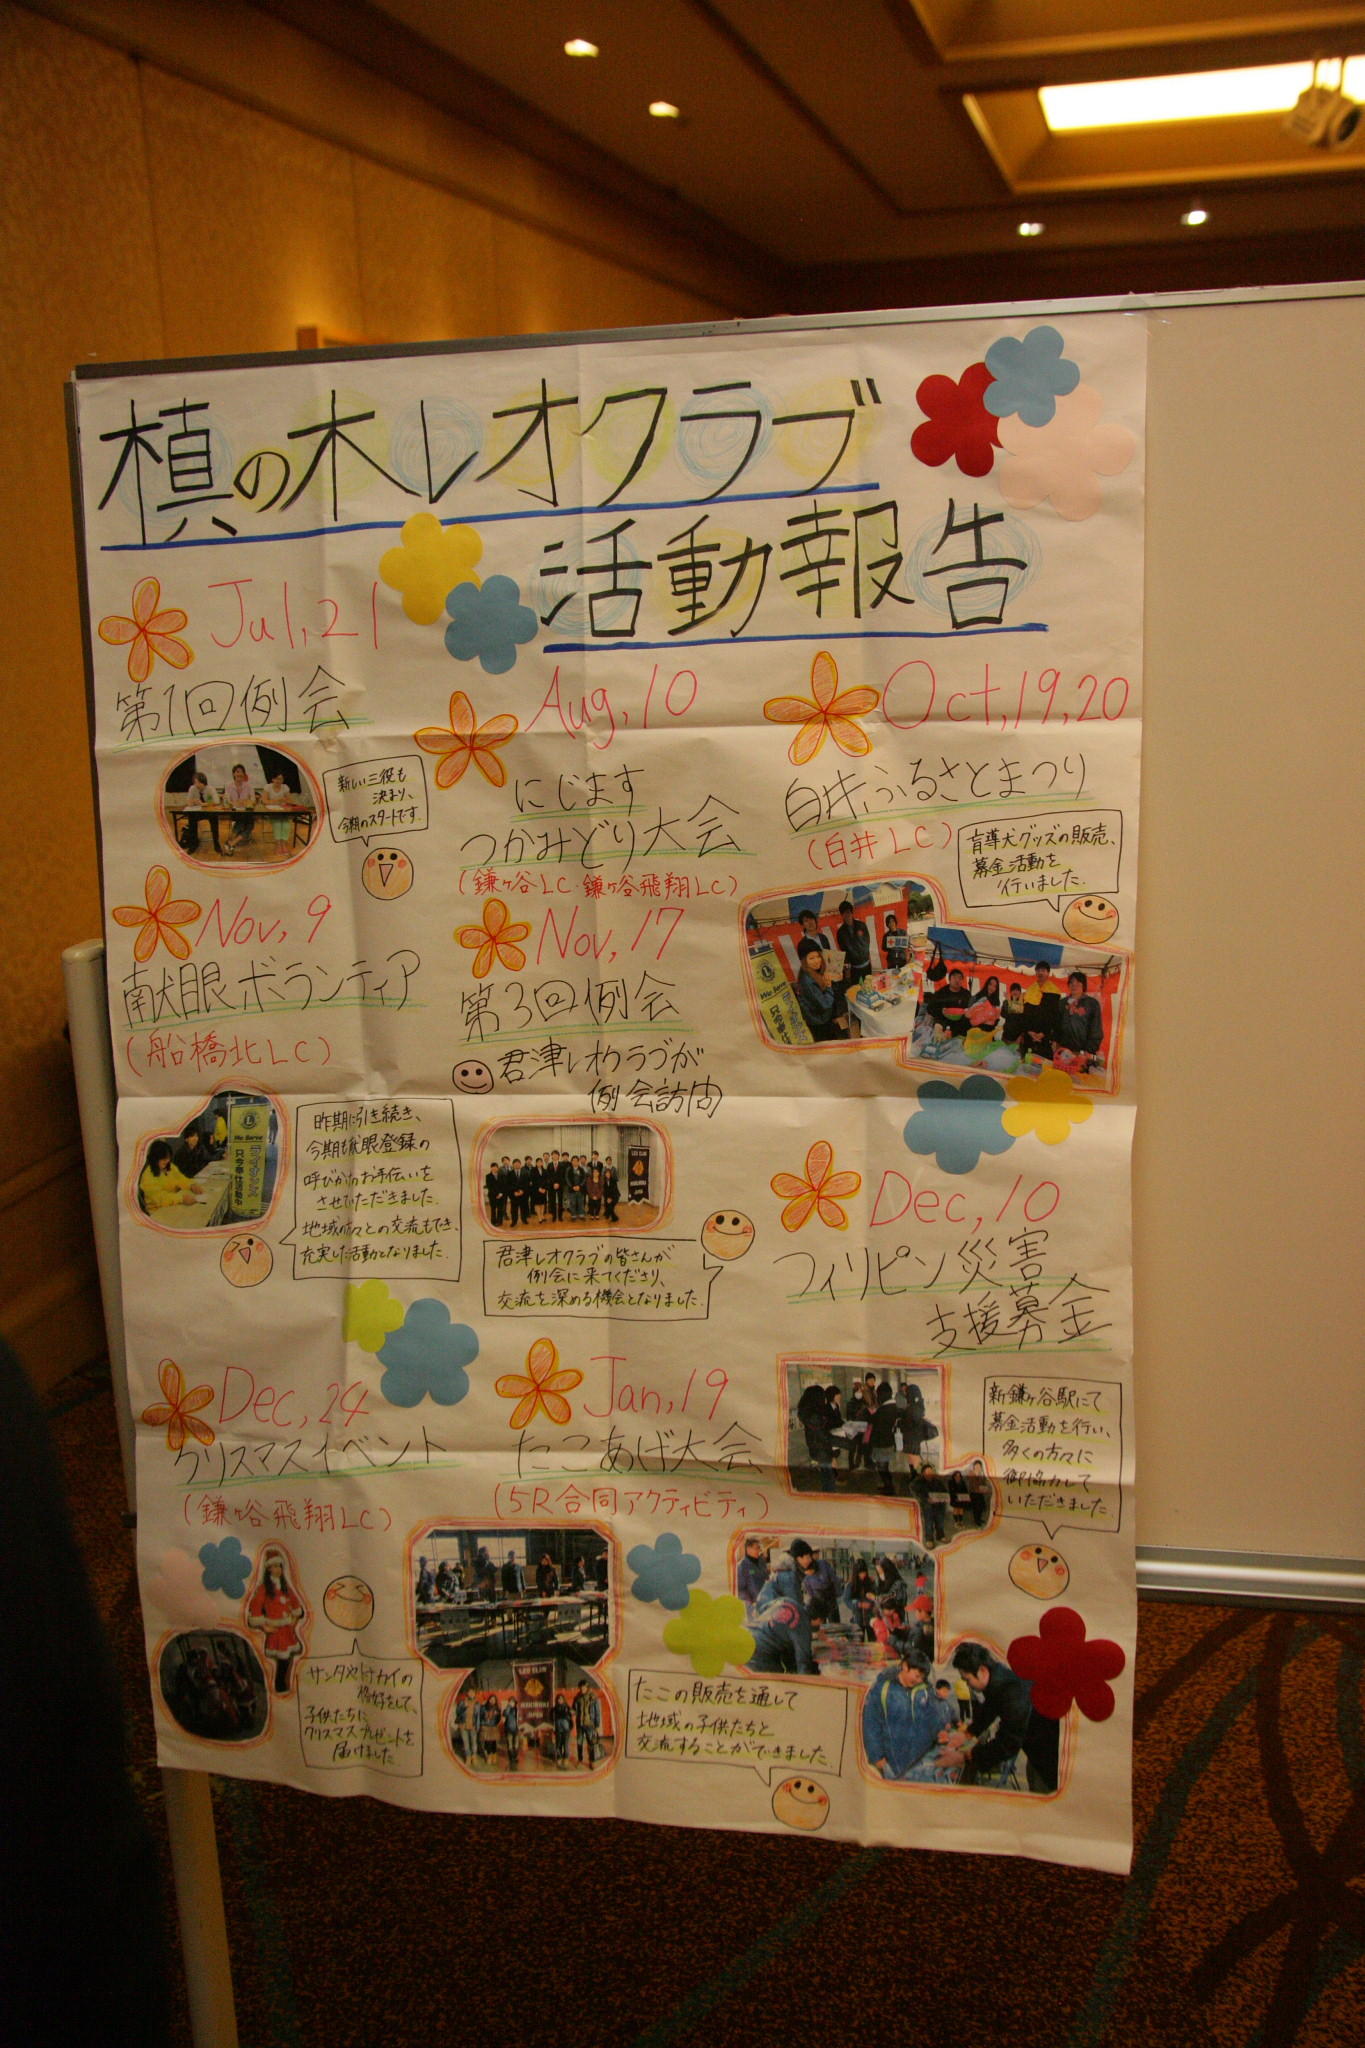 槙の木レオクラブ
活動報告
Jul, 21
第1回例会
新しい三役も
決まり、
今期のスタートです。
Aug, 10
にじます
つかみどり大会
(鎌ヶ谷LC・鎌ヶ谷飛翔LC)
Oct, 19, 20
白井ふるさとまつり
(白井LC)
盲導犬グッズの販売、
募金活動を
行いました。
We Serve
Nov, 9
献眼ボランティア
(船橋北LC)
We Serve
ライオンズ
只今奉仕活動中
昨期に引き続き、
今期も献眼登録の
呼びかけのお手伝いを
させていただきました。
地域の方々との交流もでき、
充実した活動となりました。
Nov, 17
第3回例会
君津レオクラブが
例会訪問
LEO CLUB
君津レオクラブの皆さんが
例会に来てくださり、
交流を深める機会となりました。
Dec, 10
フィリピン災害
支援募金
新鎌ヶ谷駅にて
募金活動を行い、
多くの方々に
御協力して
いただきました。
Dec, 24
クリスマスイベント
(鎌ヶ谷飛翔LC)
サンタやトナカイの
格好をして、
子供たちに
クリスマスプレゼントを
届けました。
Jan, 19
たこあげ大会
(5R合同アクティビティ)
LEO CLUB
JAPAN
たこの販売を通して
地域の子供たちと
交流することができました。